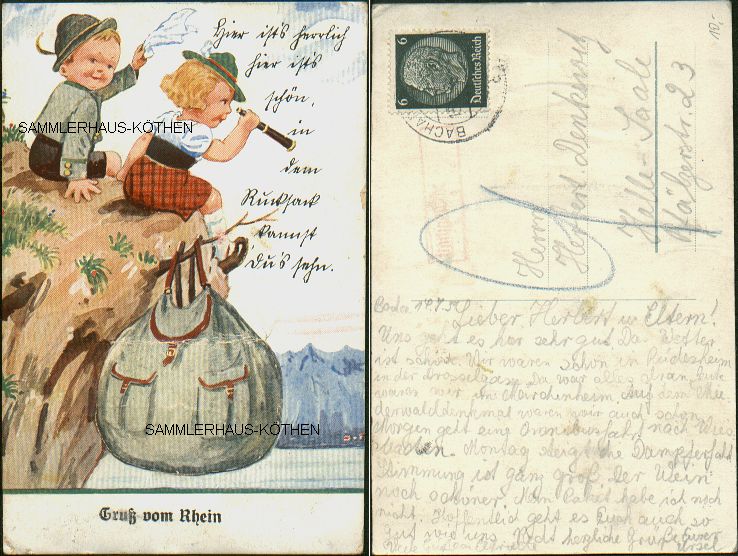 Hier ist's herrlich
hier ist's
schön,
in
dem
Rucksack
kannst
Du's sehn.
SAMMLERHAUS-KÖTHEN
SAMMLERHAUS-KÖTHEN
Gruß vom Rhein
10,-
6
6
Deutsches Reich
BACHA
Herrn
Herbert Denkewitz
Halle-Saale
23
Lieber Herbert u. Eltern!
Uns geht es hier sehr gut. Das Wetter
ist schön. Wir waren schon in Rüdesheim
in der Drosselgasse. Da war alles dran. Heute
waren wir in
waren wir auch schon.
Morgen geht eine Omnibusfahrt nach Wies
baden. Montag steigt die Dampferfahrt
Stimmung ist ganz groß. Der Wein
noch schöner. Mein Paket habe ich noch
nicht. Hoffentlich geht es Euch auch so
gut wie uns. Recht herzliche Grüße
Ursel